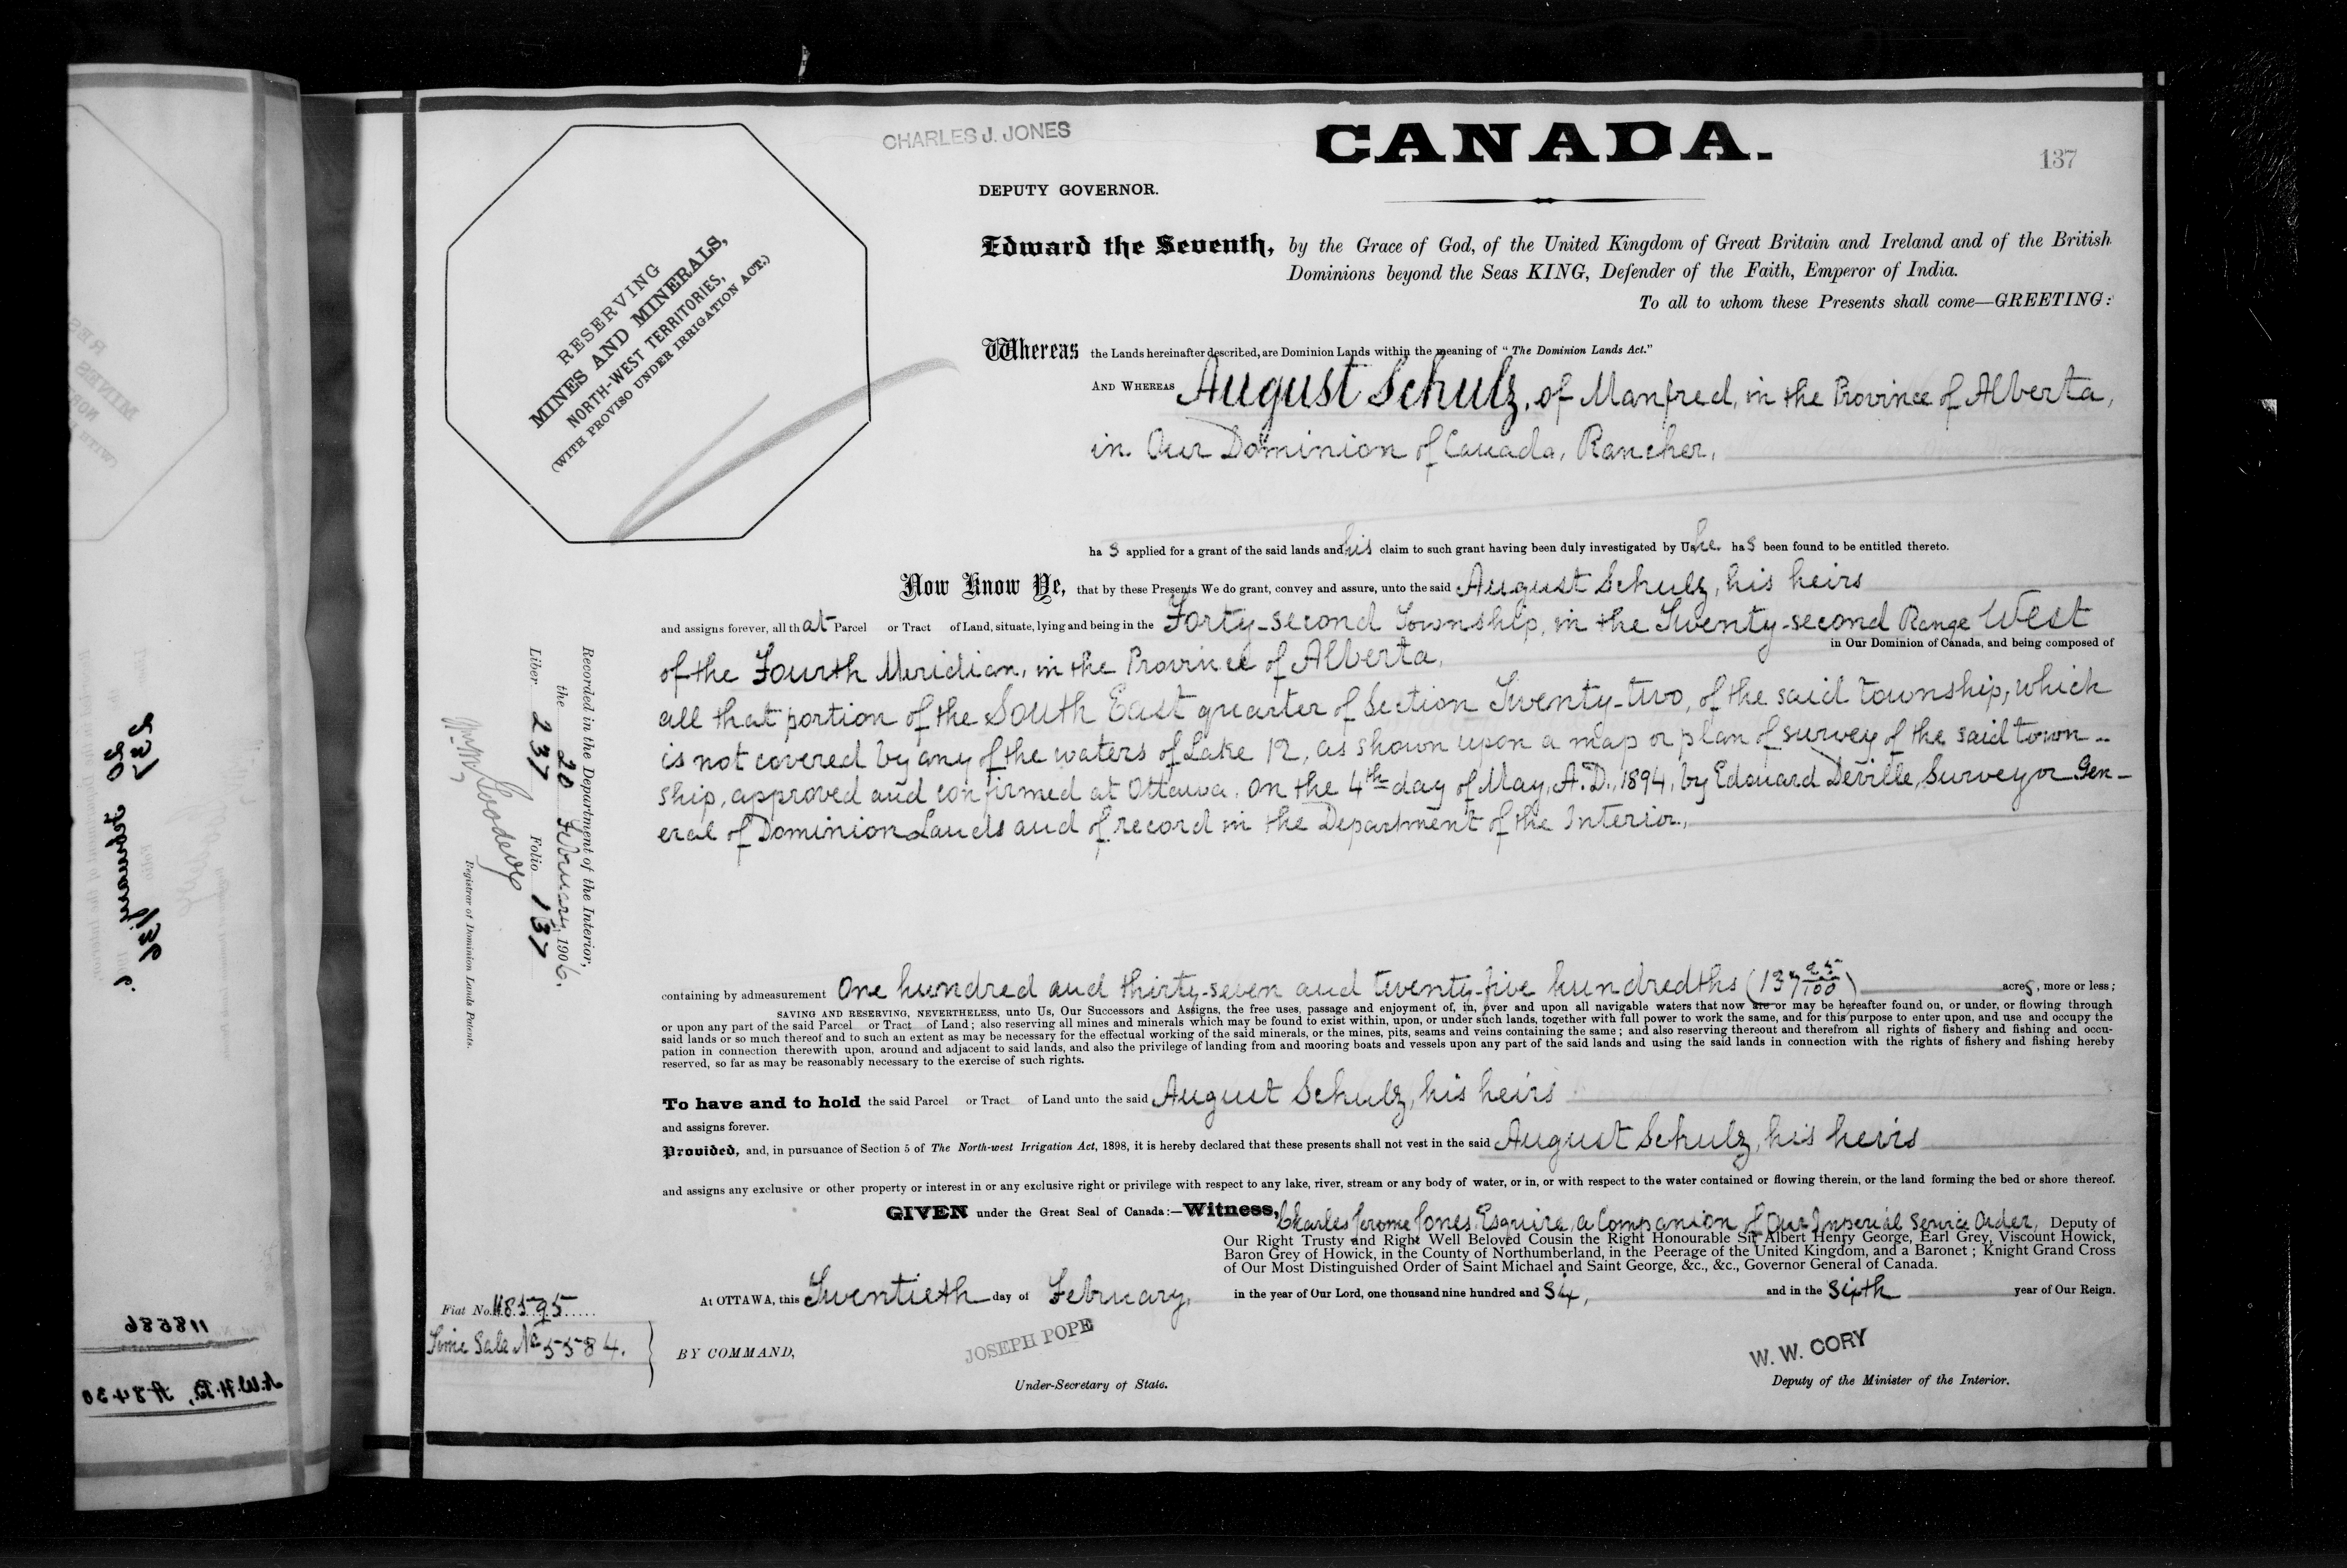 CHARLES J. JONES
CANADA.
137
DEPUTY GOVERNOR.
RESERVING
MINES AND MINERALS,
NORTH-WEST TERRITORIES,
(WITH PROVISO UNDER IRRIGATION ACT.)
Edward the Seventh, by the Grace of God, of the United Kingdom of Great Britain and Ireland and of the British
Dominions beyond the Seas KING, Defender of the Faith, Emperor of India.
To all to whom these Presents shall come—GREETING:
Whereas the Lands hereinafter described, are Dominion Lands within the meaning of "The Dominion Lands Act."
AND WHEREAS August Schulz, of Manfred, in the Province of Alberta,
in Our Dominion of Canada, Rancher,
ha s applied for a grant of the said lands and his claim to such grant having been duly investigated by Us he has been found to be entitled thereto.
Now Know Ye, that by these Presents We do grant, convey and assure, unto the said August Schulz, his heirs
and assigns forever, all that Parcel or Tract of Land, situate, lying and being in the Forty-second Township, in the Twenty-second Range West
of the Fourth Meridian, in the Province of Alberta, in Our Dominion of Canada, and being composed of
all that portion of the South East quarter of Section Twenty-two, of the said township, which
is not covered by any of the waters of Lake 12, as shown upon a map or plan of survey of the said town-
ship, approved and confirmed at Ottawa, on the 4th day of May, A.D., 1894, by Edouard Deville, Surveyor Gen-
eral of Dominion Lands and of record in the Department of the Interior,
containing by admeasurement One hundred and thirty-seven and twenty-five hundredths (137 25/100) acres, more or less;
SAVING AND RESERVING, NEVERTHELESS, unto Us, Our Successors and Assigns, the free uses, passage and enjoyment of, in, over and upon all navigable waters that now are or may be hereafter found on, or under, or flowing through
or upon any part of the said Parcel or Tract of Land; also reserving all mines and minerals which may be found to exist within, upon, or under such lands, together with full power to work the same, and for this purpose to enter upon, and use and occupy the
said lands or so much thereof and to such an extent as may be necessary for the effectual working of the said minerals, or the mines, pits, seams and veins containing the same; and also reserving thereout and therefrom all rights of fishery and fishing and occu-
pation in connection therewith upon, around and adjacent to said lands, and also the privilege of landing from and mooring boats and vessels upon any part of the said lands and using the said lands in connection with the rights of fishery and fishing hereby
reserved, so far as may be reasonably necessary to the exercise of such rights.
To have and to hold the said Parcel or Tract of Land unto the said August Schulz, his heirs
and assigns forever.
Provided, and, in pursuance of Section 5 of The North-west Irrigation Act, 1898, it is hereby declared that these presents shall not vest in the said August Schulz, his heirs
and assigns any exclusive or other property or interest in or any exclusive right or privilege with respect to any lake, river, stream or any body of water, or in, or with respect to the water contained or flowing therein, or the land forming the bed or shore thereof.
GIVEN under the Great Seal of Canada:—Witness, Charles Jerome Jones, Esquire, a Companion of Our Imperial Service Order, Deputy of
Our Right Trusty and Right Well Beloved Cousin the Right Honourable Sir Albert Henry George, Earl Grey, Viscount Howick,
Baron Grey of Howick, in the County of Northumberland, in the Peerage of the United Kingdom, and a Baronet; Knight Grand Cross
of Our Most Distinguished Order of Saint Michael and Saint George, &c., &c., Governor General of Canada.
At OTTAWA, this Twentieth day of February, in the year of Our Lord, one thousand nine hundred and Six, and in the Sixth year of Our Reign.
BY COMMAND,
JOSEPH POPE
Under-Secretary of State.
W. W. CORY
Deputy of the Minister of the Interior.
Recorded in the Department of the Interior,
the 20 February, 1906.
Liber 237 Folio 137
Registrar of Dominion Lands Patents.
Fiat No. 118595
Time Sale No 5584.
237 136
20 February
118586
N.W.H.B, A 8430